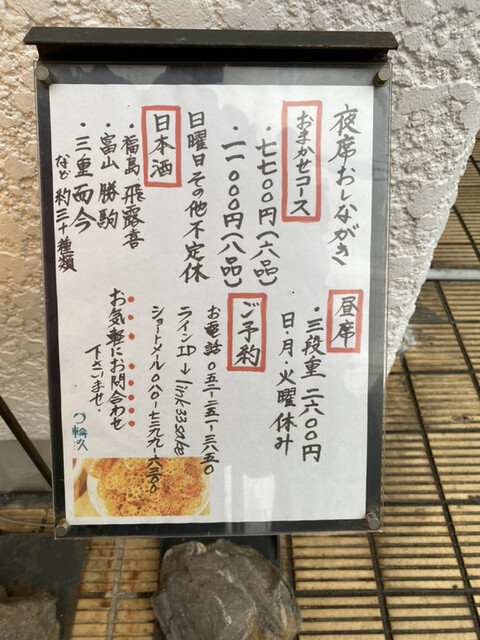 夜席おしながき
おまかせコース
・七七〇〇円(六品)
・一一〇〇〇円(八品)
日曜日その他不定休
日本酒
・福島 飛露喜
・富山 勝駒
・三重 而今
など 約三十種類
昼席
・三段重 二六〇〇円
日・月・火曜休み
ご予約
お電話 〇五二-二五一-三八五〇
ラインID→link33sake
お気軽にお問合わせ
下さいませ.